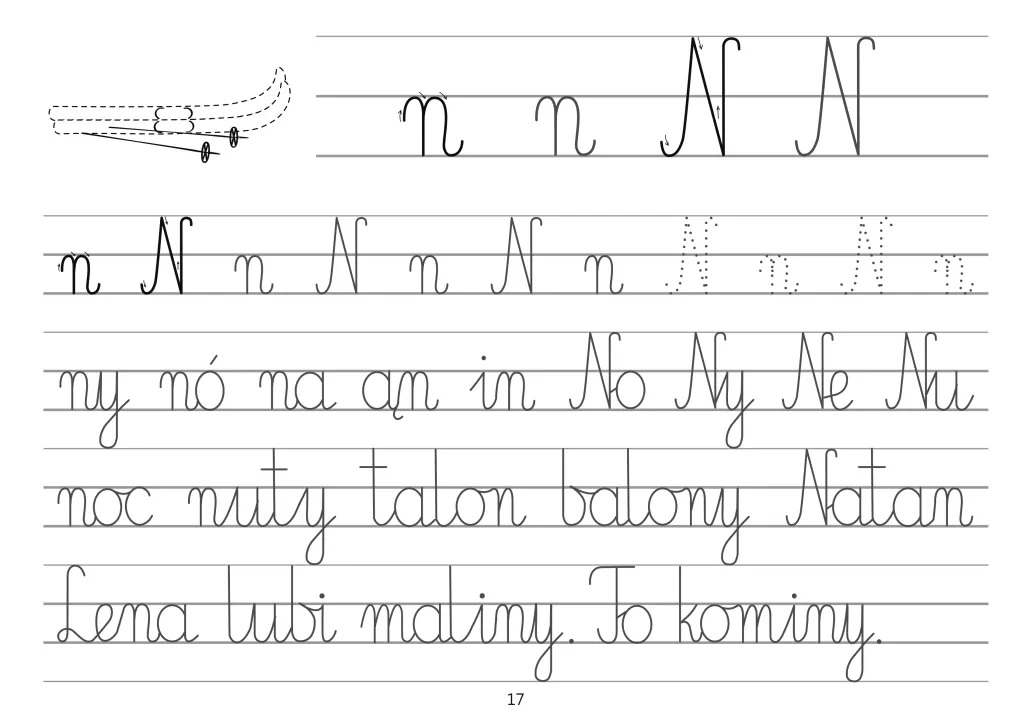 n n N N
n N n N n N n N n N n
ny nó na ąn in No Ny Ne Nu
noc nuty talon balony Natan
Lena lubi maliny. To kominy.
17